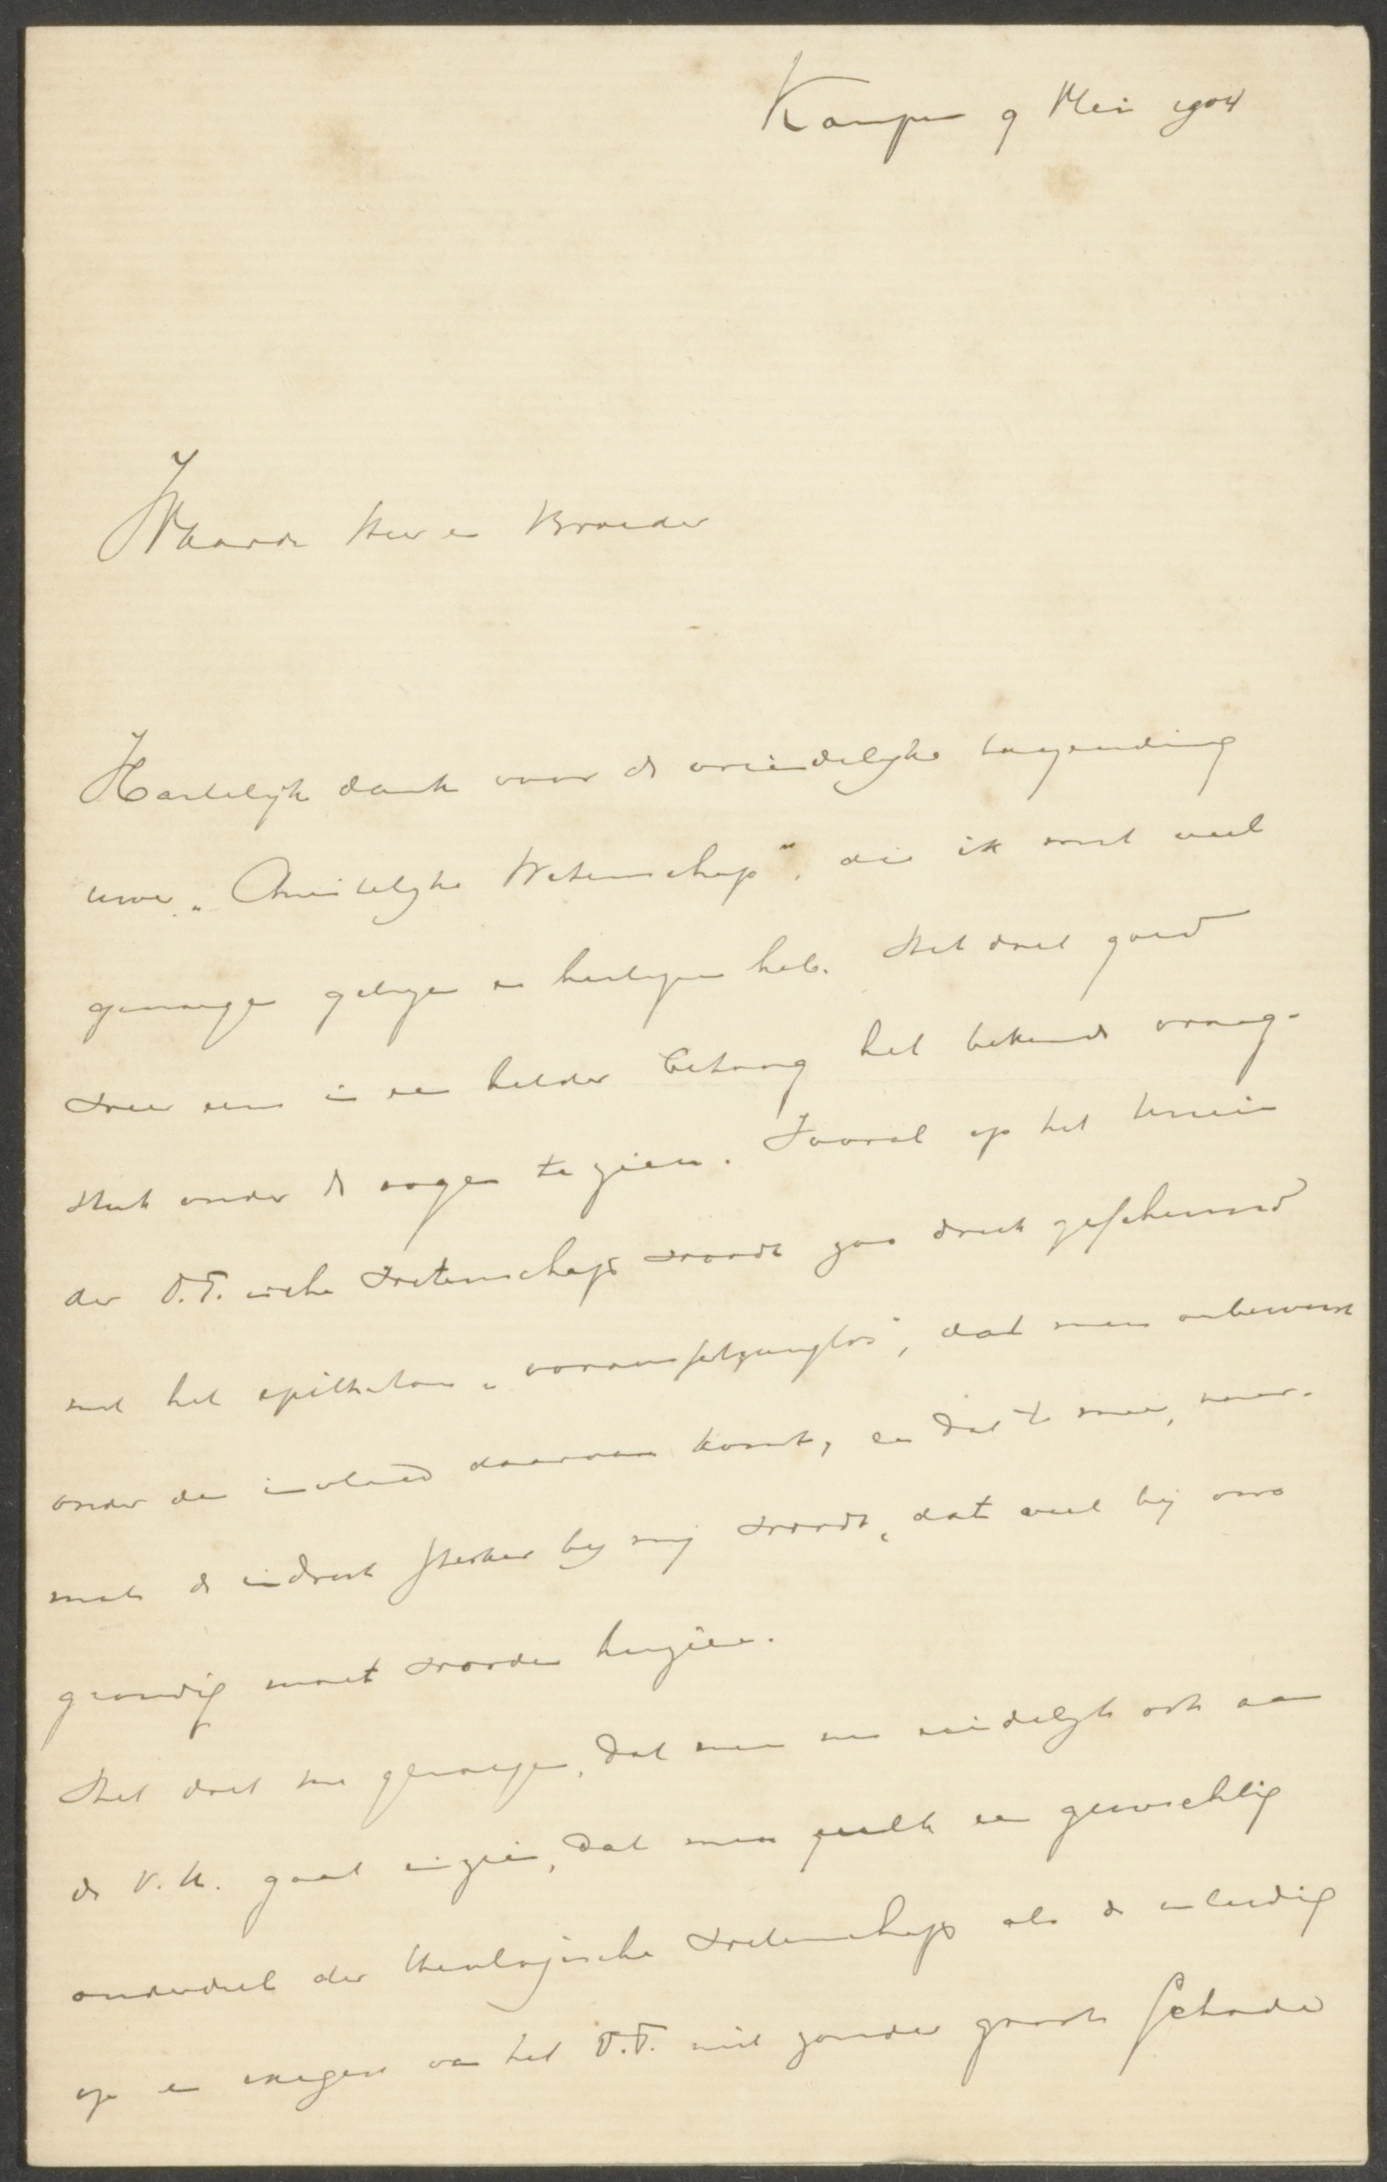 Kampen 9 Mei 1904
Waarde Heer en Broeder
Hartelijk dank voor de vriendelijke toezending
uwer „Christelijke Wetenschap”, die ik met veel
genoegen gelezen en herlezen heb. Het doet goed
weer eens in een helder betoog het bekende vraag-
stuk onder de oogen te zien. Vooral op het terrein
der O.T.ische wetenschap wordt zoo druk geschermd
met het epitheton „voraussetzungslos”, dat men onbewust
onder den invloed daarvan komt, en dat te meer, naar-
mate de indruk sterker bij mij wordt, dat veel bij ons
grondig moet worden herzien.
Het doet me genoegen, dat men nu eindelijk ook aan
de V.U. gaat inzien, dat men zulk een gewichtig
onderdeel der theologische wetenschap als de inleiding
op en exegese van het O.T. niet zonder groote schade